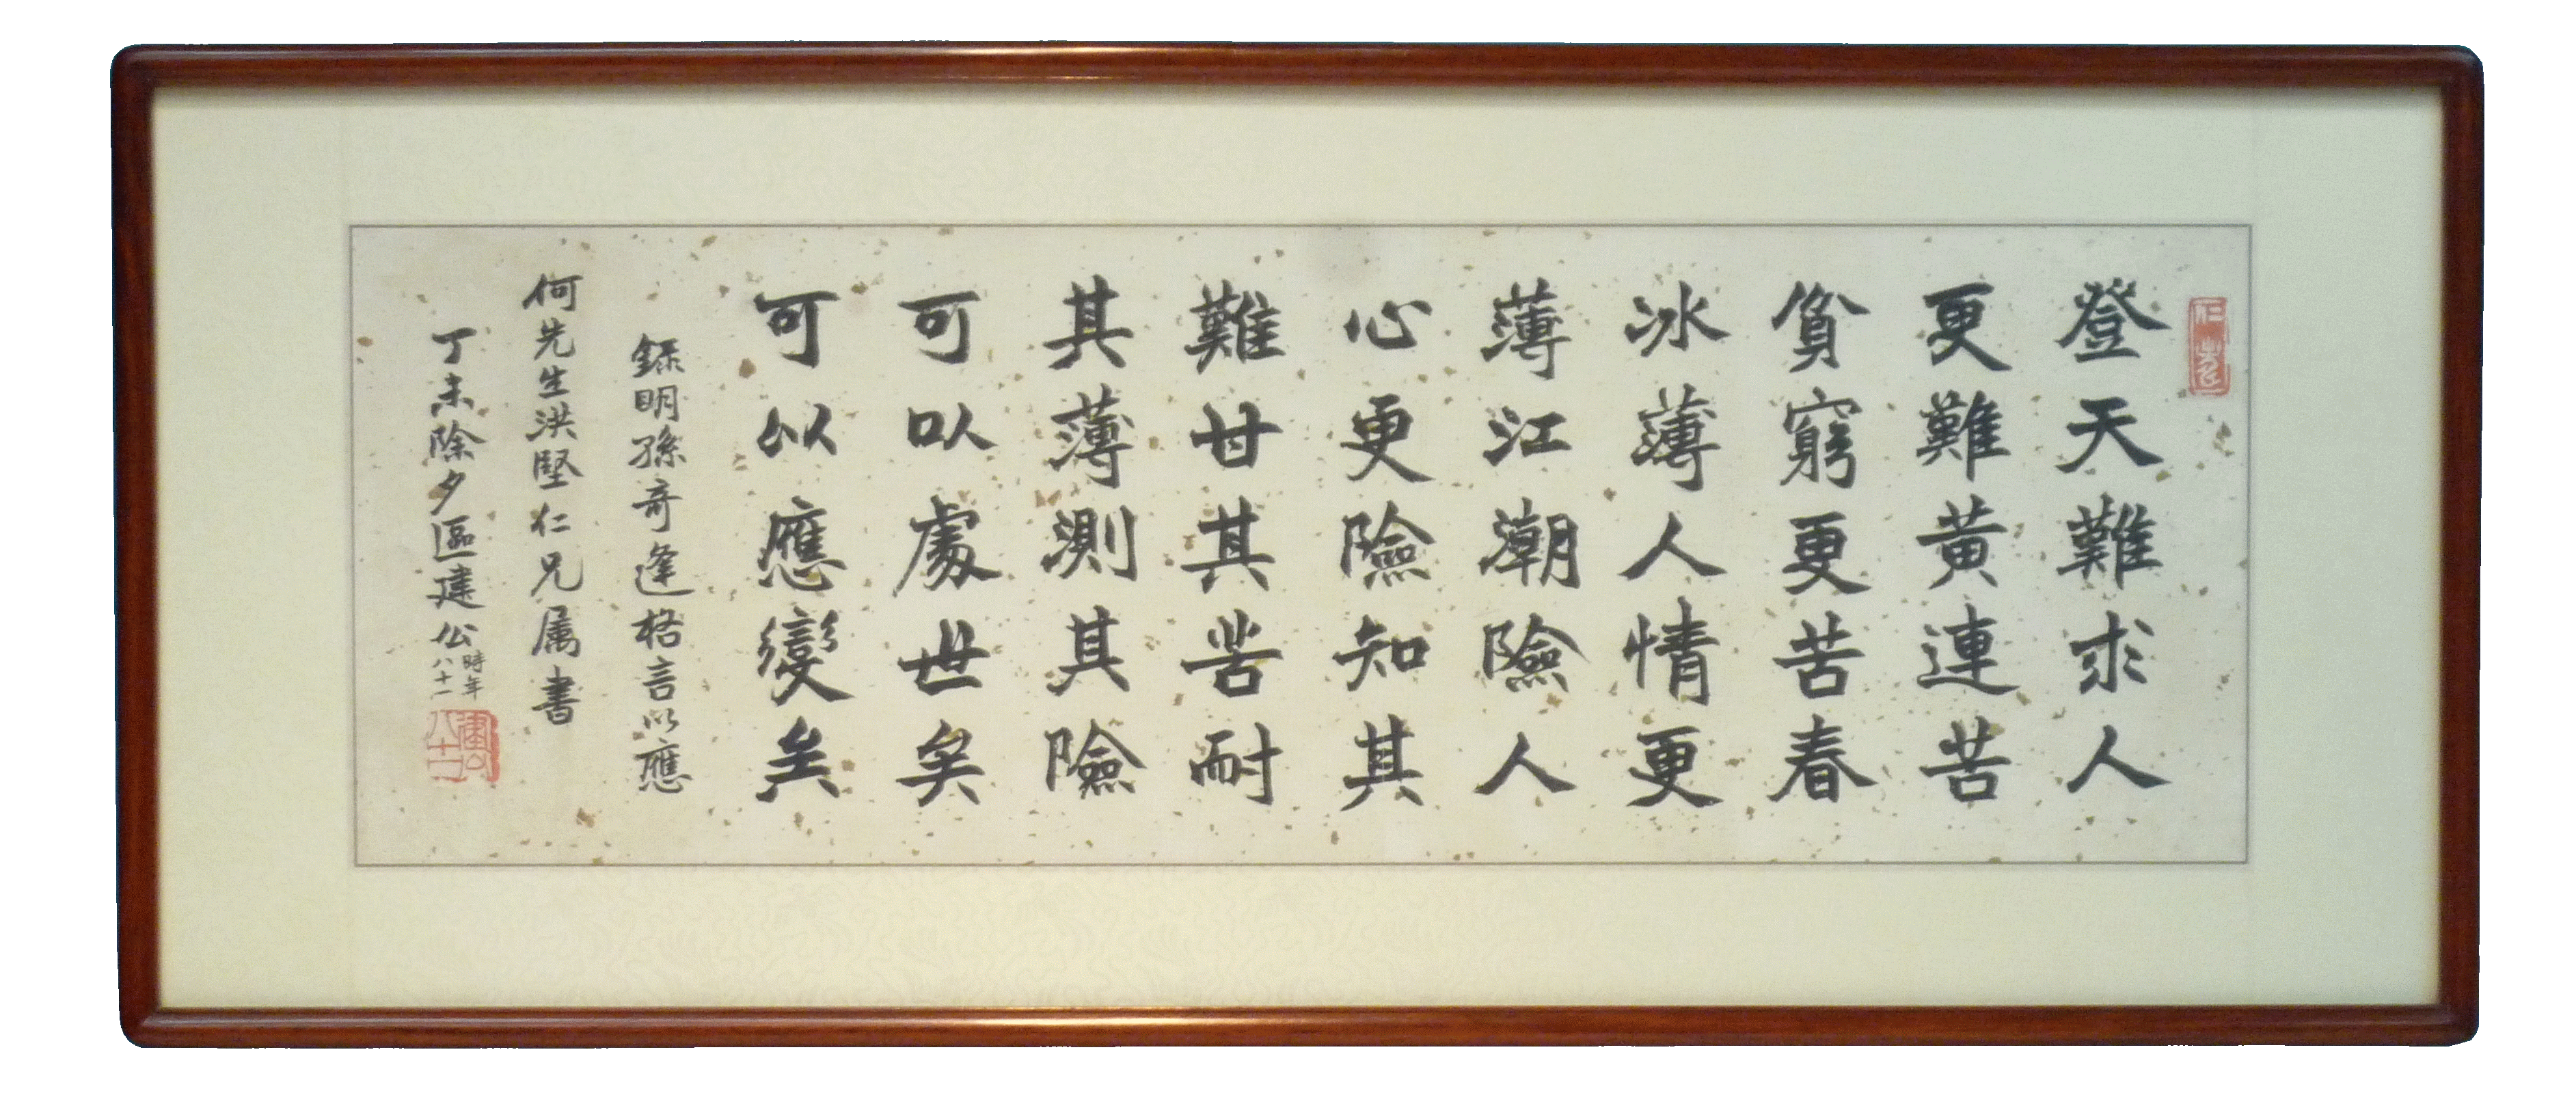 登天難求人
更難黃連苦
貧窮更苦春
冰薄人情更
薄江潮險人
心更險知其
難甘其苦耐
其薄測其險
可以處世矣
可以應變矣
錄明孫奇逢格言以應
何先生洪堅仁兄属書
丁未除夕區建公時年八十一